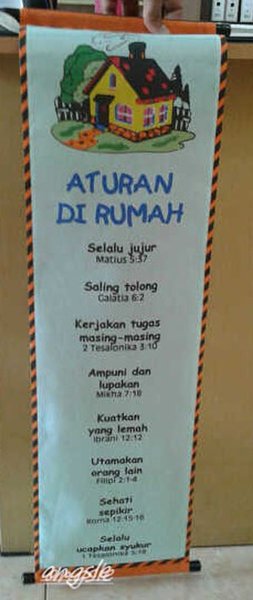 ATURAN
DI RUMAH
Selalu jujur
Matius 5:37
Saling tolong
Galatia 6:2
Kerjakan tugas
masing-masing
2 Tesalonika 3:10
Ampuni dan
lupakan
Mikha 7:18
Kuatkan
yang lemah
Ibrani 12:12
Utamakan
orang lain
Filipi 2:1-4
Sehati
sepikir
Roma 12:15-16
Selalu
ucapkan syukur
1 Tesalonika 5:18
angsle